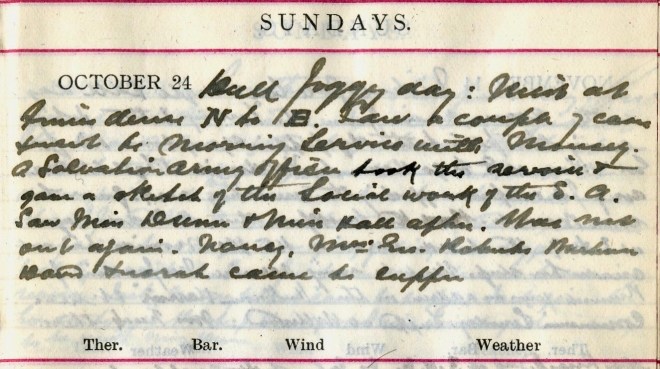 SUNDAYS.
OCTOBER 24 Dull foggy day: Mist at
times dense N to E. Saw a couple of cases
went to Morning Service with Mousey.
A Salvation Army officer took the service &
gave a sketch of the Social work of the S. A.
Saw Miss Dunn & Miss Hall after. Was not
out again. Nancy, Mrs Roberts
& Sarah came to supper
Ther. Bar. Wind Weather